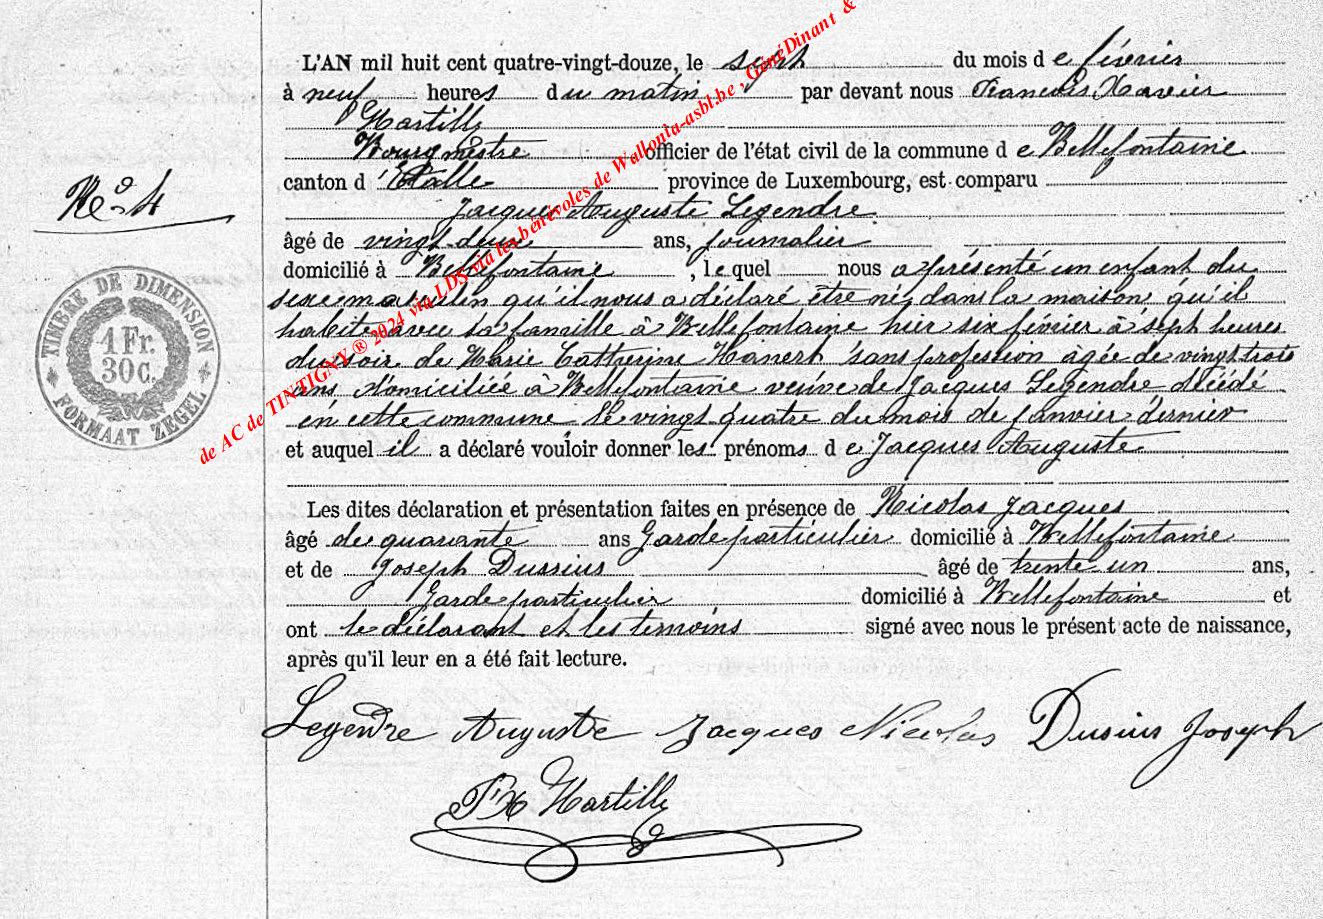 L'AN mil huit cent quatre-vingt-douze, le sept du mois de février
à neuf heures du matin par devant nous François Xavier
Hartill
Bourgmestre officier de l'état civil de la commune de Bellefontaine
canton d'Etalle province de Luxembourg, est comparu
Jacques Auguste Legendre
âgé de vingt deux ans, journalier
domicilié à Bellefontaine, lequel nous a présenté un enfant du
sexe masculin qu'il nous a déclaré être né dans la maison qu'il
habite avec sa famille à Bellefontaine hier six février à sept heures
du soir de Marie Catherine Hanert sans profession âgée de vingt trois
ans domiciliée à Bellefontaine veuve de Jacques Legendre décédé
en cette commune le vingt quatre du mois de janvier dernier
et auquel il a déclaré vouloir donner les prénoms de Jacques Auguste
Les dites déclaration et présentation faites en présence de Nicolas Jacques
âgé de quarante ans Garde particulier domicilié à Bellefontaine
et de Joseph Dussius âgé de trente un ans,
Garde particulier domicilié à Bellefontaine et
ont le déclarant et les témoins signé avec nous le présent acte de naissance,
après qu'il leur en a été fait lecture.
Legendre Auguste Jacques Nicolas Dusius Joseph
FX Hartill
No 4
TIMBRE DE DIMENSION
1 Fr.
30 C.
FORMAAT ZEGEL
de AC de TINTIGNY ® 2024 via LDS via les bénévoles de Wallonia-asbl.be , GénéDinant &